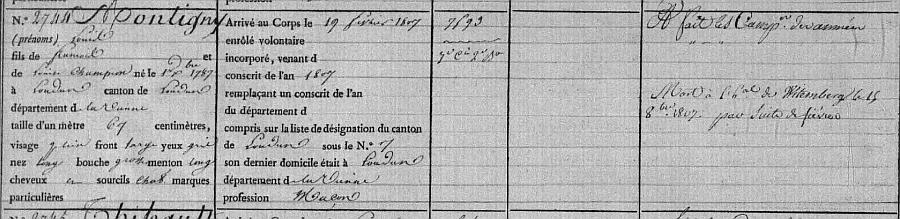 N.° 2744 Montigny
(prénoms) Louis
fils de et
de Louise Champion né le 1er Xbre 1787
à Loudun canton de Loudun
département d e la Vienne
taille d'un mètre 67 centimètres,
visage plein front large yeux gris
nez long bouche grosse menton long
cheveux et sourcils chat. marques
particulières
Arrivé au Corps le 19 février 1807
enrôlé volontaire
incorporé, venant d
conscrit de l'an 1807
remplaçant un conscrit de l'an
du département d
compris sur la liste de désignation du canton
de Loudun sous le N.° 7
son dernier domicile était à Loudun
département d e la Vienne
profession Maçon
7693
A fait les Camp.nes de
Mort à l'h.al de Wittemberg le 15
8bre 1807 par suite de fièvre